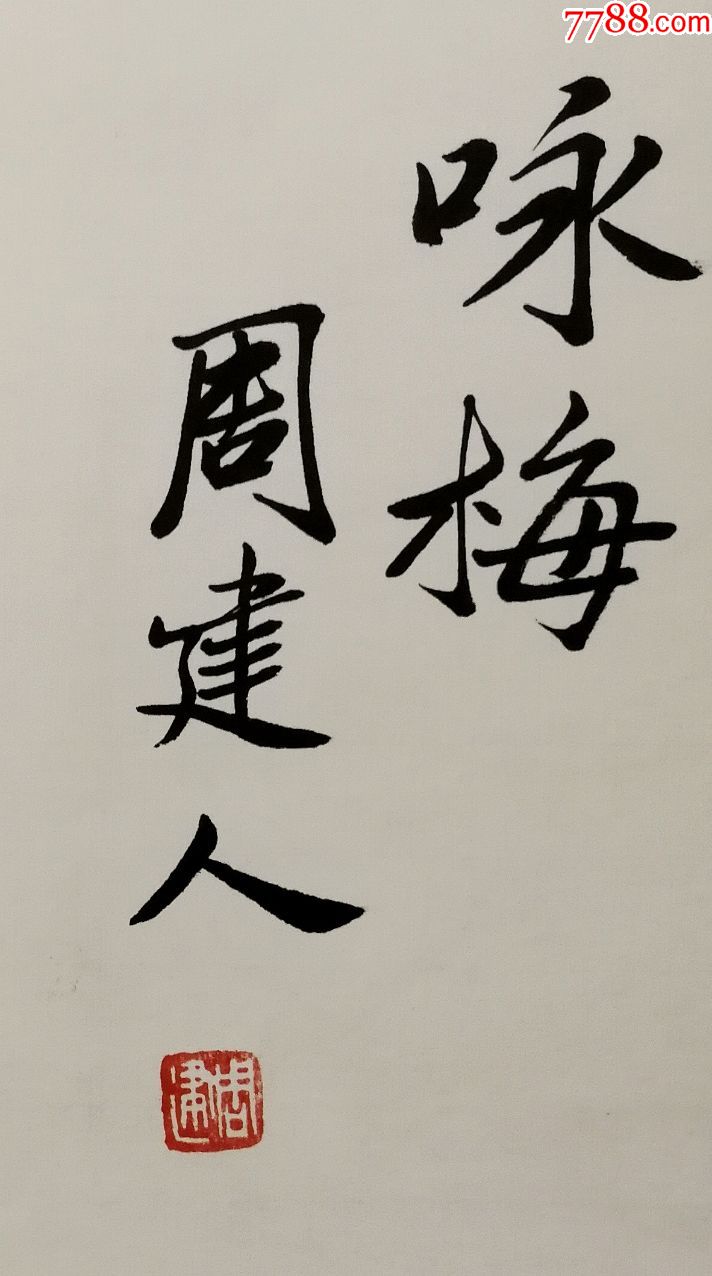 7788.com
咏梅
周建人
周建